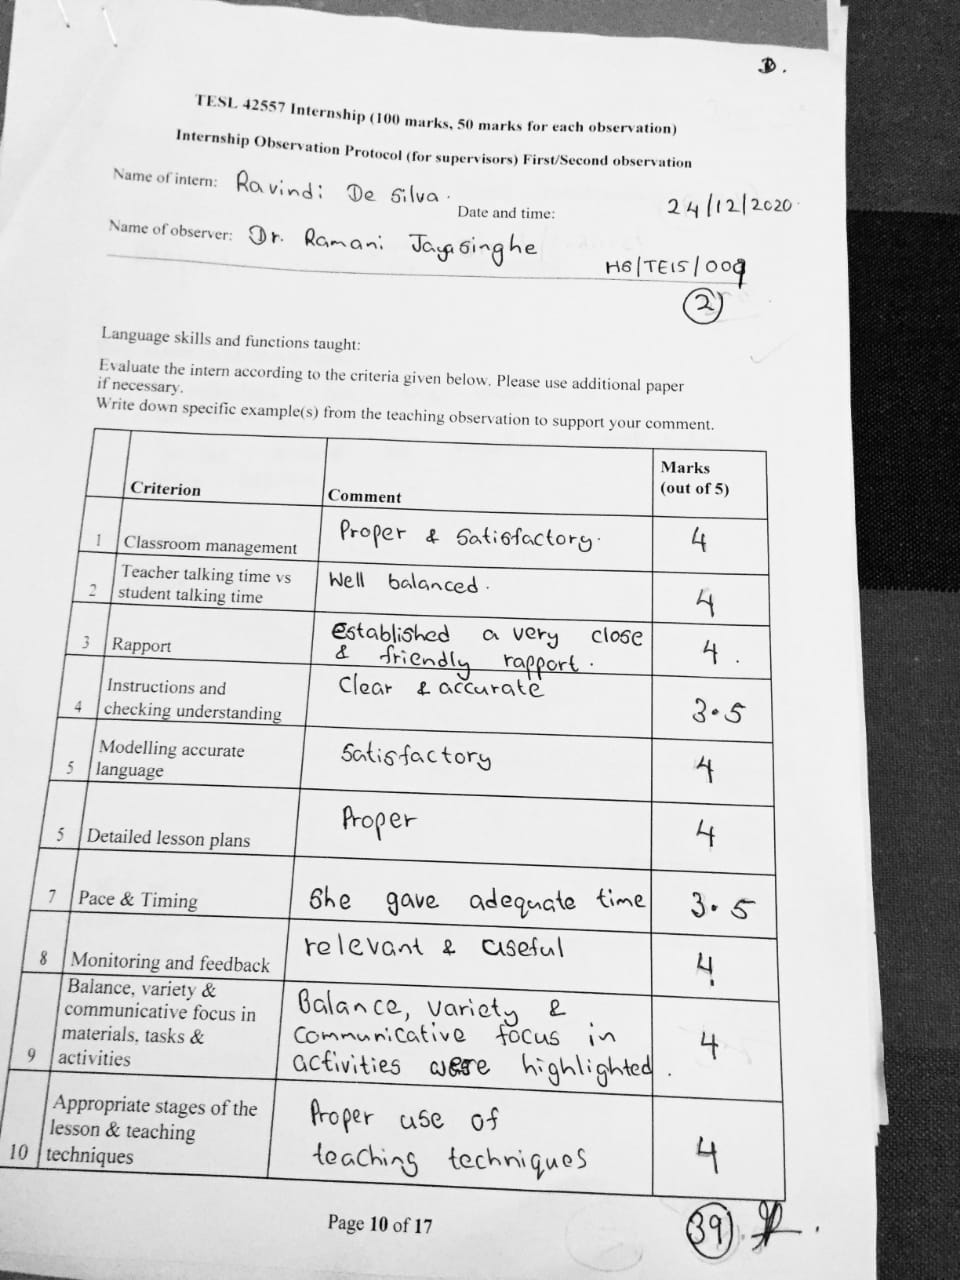 D.
TESL 42557 Internship (100 marks, 50 marks for each observation)
Internship Observation Protocol (for supervisors) First/Second observation
Name of intern: Ravindi De Silva.
Date and time: 24/12/2020
Name of observer: Dr. Ramani Jayasinghe
HS/TE15/009
2
Language skills and functions taught:
Evaluate the intern according to the criteria given below. Please use additional paper
if necessary.
Write down specific example(s) from the teaching observation to support your comment.
Criterion
Comment
Marks
(out of 5)
1 Classroom management
Proper & Satisfactory.
4
2 Teacher talking time vs
student talking time
Well balanced.
4
3 Rapport
Established a very close
& friendly rapport.
4.
4 Instructions and
checking understanding
Clear & accurate
3.5
5 Modelling accurate
language
Satisfactory
4
5 Detailed lesson plans
Proper
4
7 Pace & Timing
She gave adequate time
3.5
8 Monitoring and feedback
relevant & useful
4
9 Balance, variety &
communicative focus in
materials, tasks &
activities
Balance, variety &
Communicative focus in
activities were highlighted.
4
10 Appropriate stages of the
lesson & teaching
techniques
Proper use of
teaching techniques
4
Page 10 of 17
39